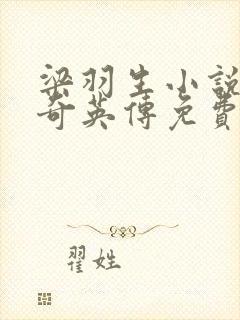 梁羽生小說
奇英傳免費
翟姓